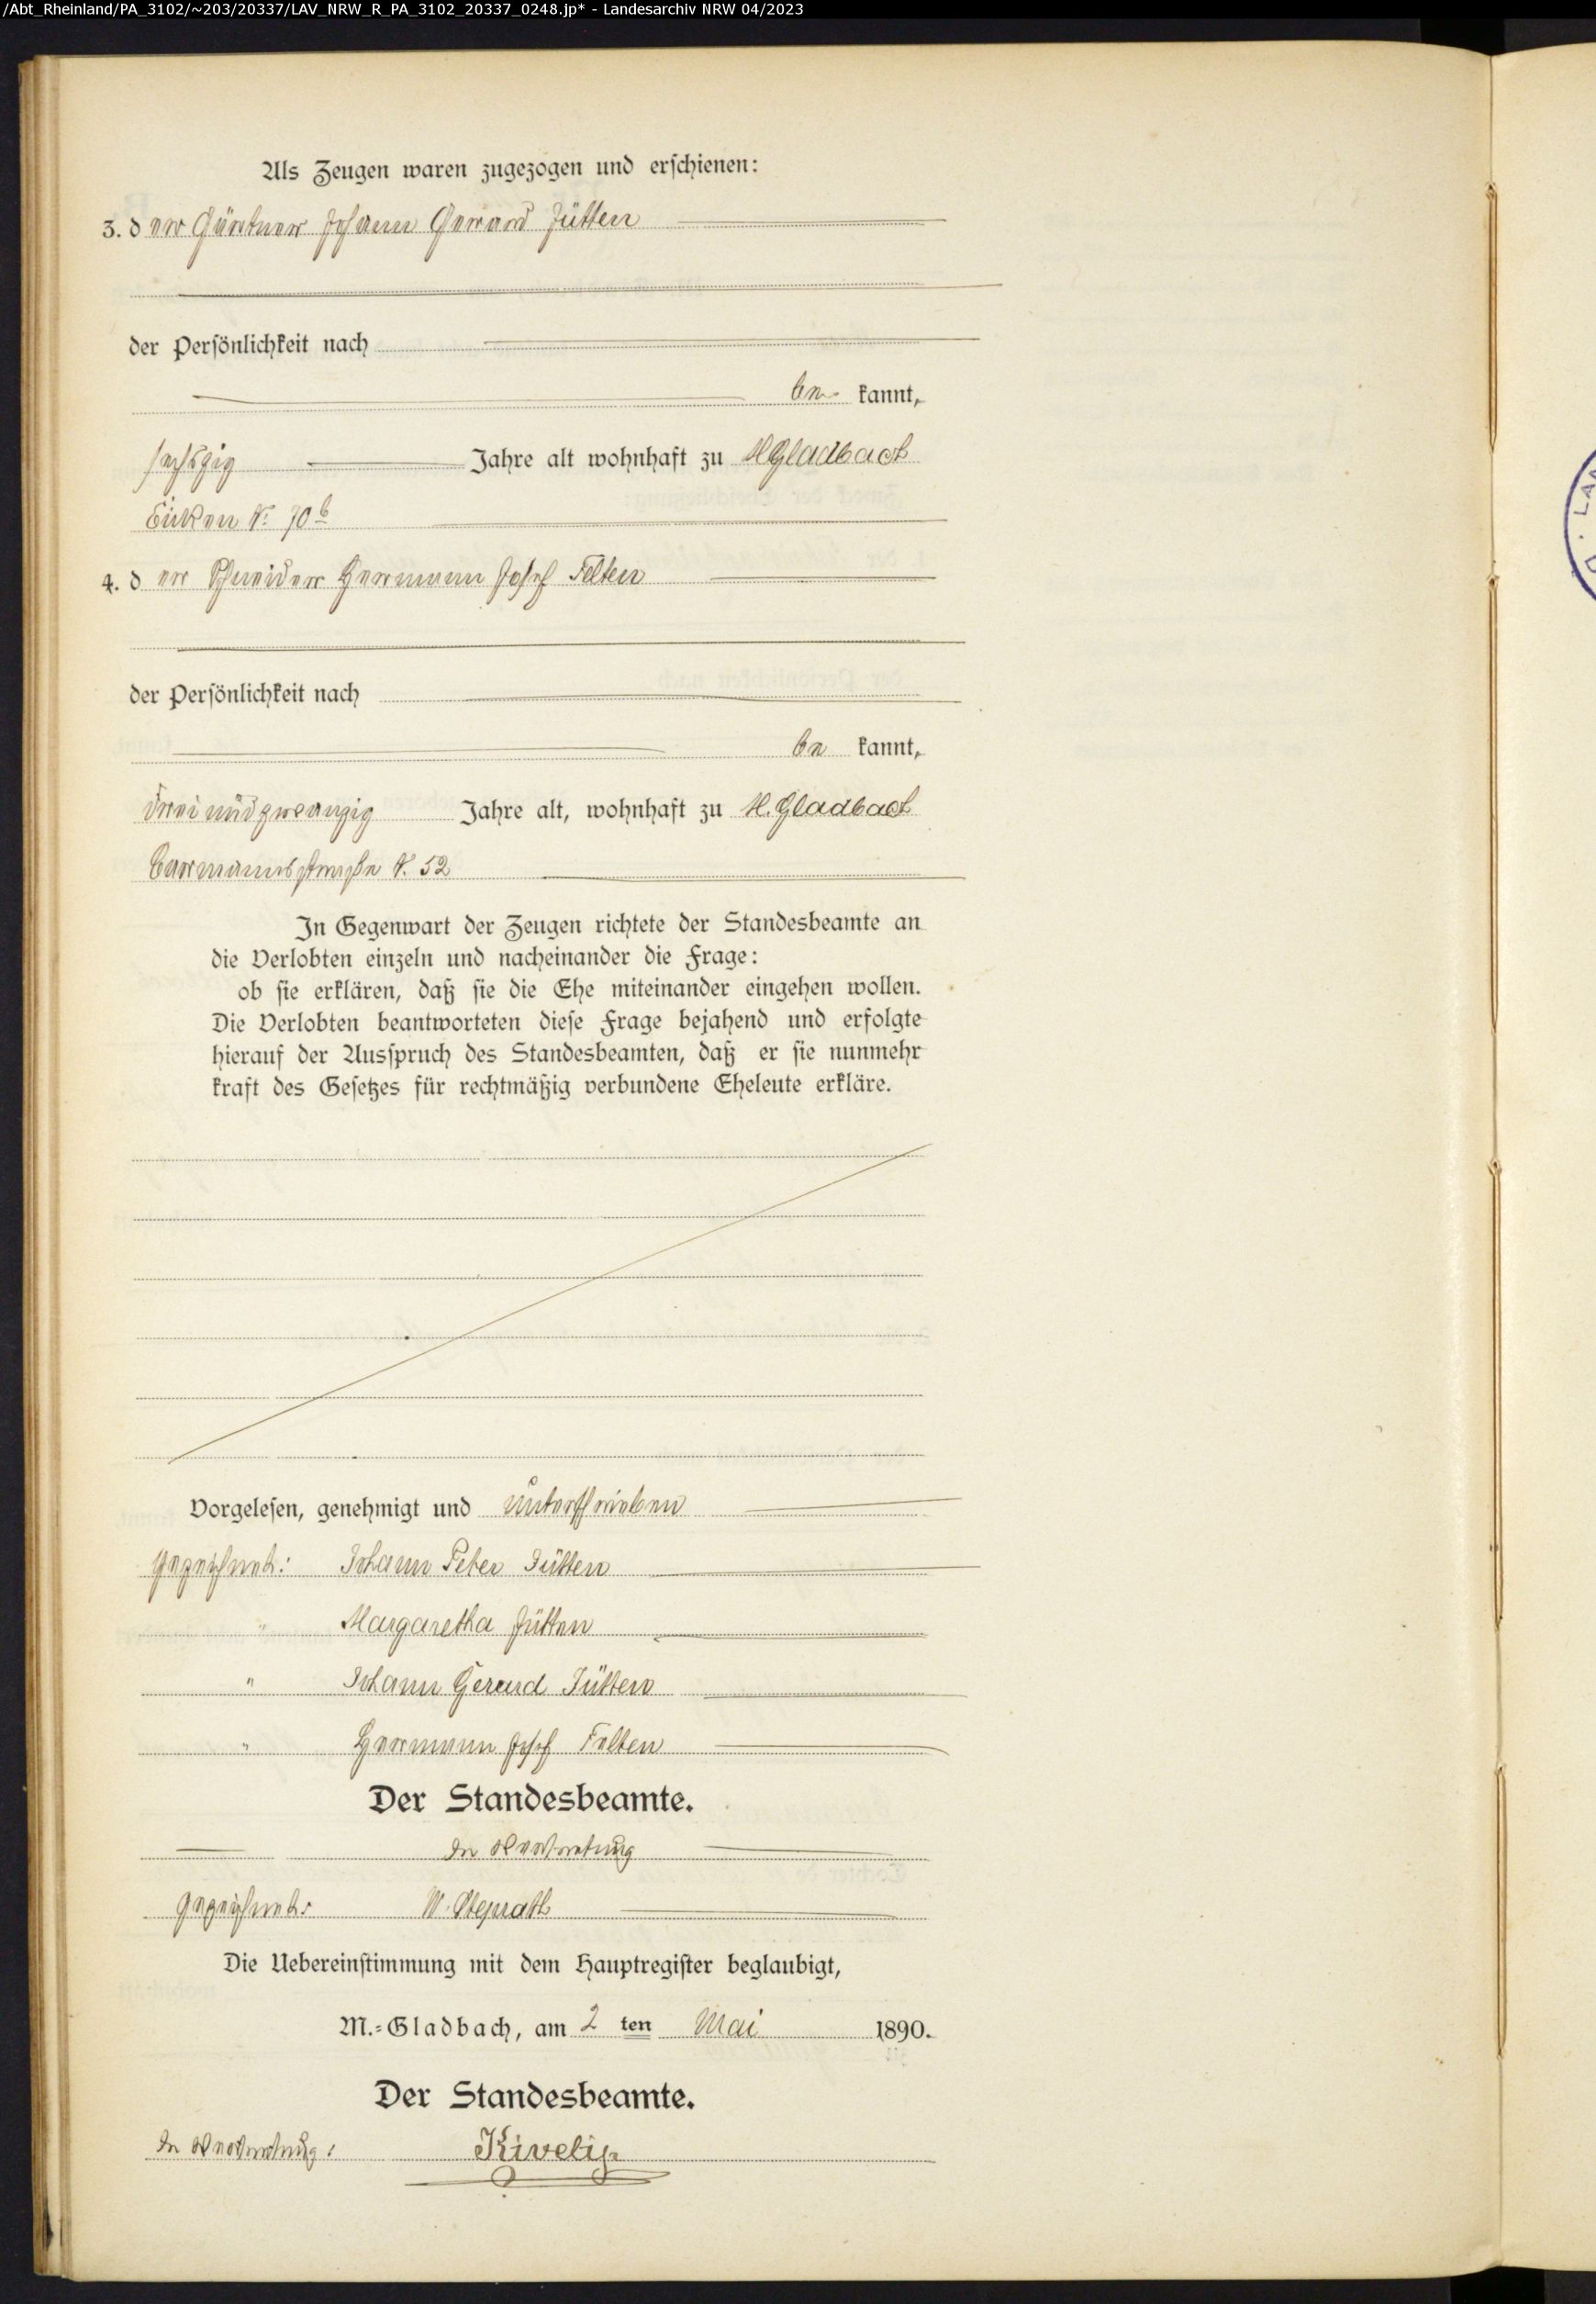 /Abt_Rheinland/PA_3102/~203/20337/LAV_NRW_R_PA_3102_20337_0248.jp* - Landesarchiv NRW 04/2023
Als Zeugen waren zugezogen und erschienen:
3. der Gärtner Johann Gerard Jütten
der Persönlichkeit nach
be kannt,
sechszig Jahre alt wohnhaft zu MGladbach
Eicken N: 70b
4. der Schneider Hermann Josef Felten
der Persönlichkeit nach
be kannt,
dreiundzwanzig Jahre alt, wohnhaft zu M.Gladbach
N. 52
In Gegenwart der Zeugen richtete der Standesbeamte an
die Verlobten einzeln und nacheinander die Frage:
ob sie erklären, daß sie die Ehe miteinander eingehen wollen.
Die Verlobten beantworteten diese Frage bejahend und erfolgte
hierauf der Ausspruch des Standesbeamten, daß er sie nunmehr
kraft des Gesetzes für rechtmäßig verbundene Eheleute erkläre.
Vorgelesen, genehmigt und unterschrieben
Gezeichnet: Johann Peter Jütten
" Margaretha Jütten
" Johann Gerard Jütten
" Hermann Josef Felten
Der Standesbeamte.
In Vertretung
Gezeichnet: W. Steprath
Die Uebereinstimmung mit dem Hauptregister beglaubigt,
M.=Gladbach, am 2 ten Mai 1890.
Der Standesbeamte.
In Vertretung: Kivelip